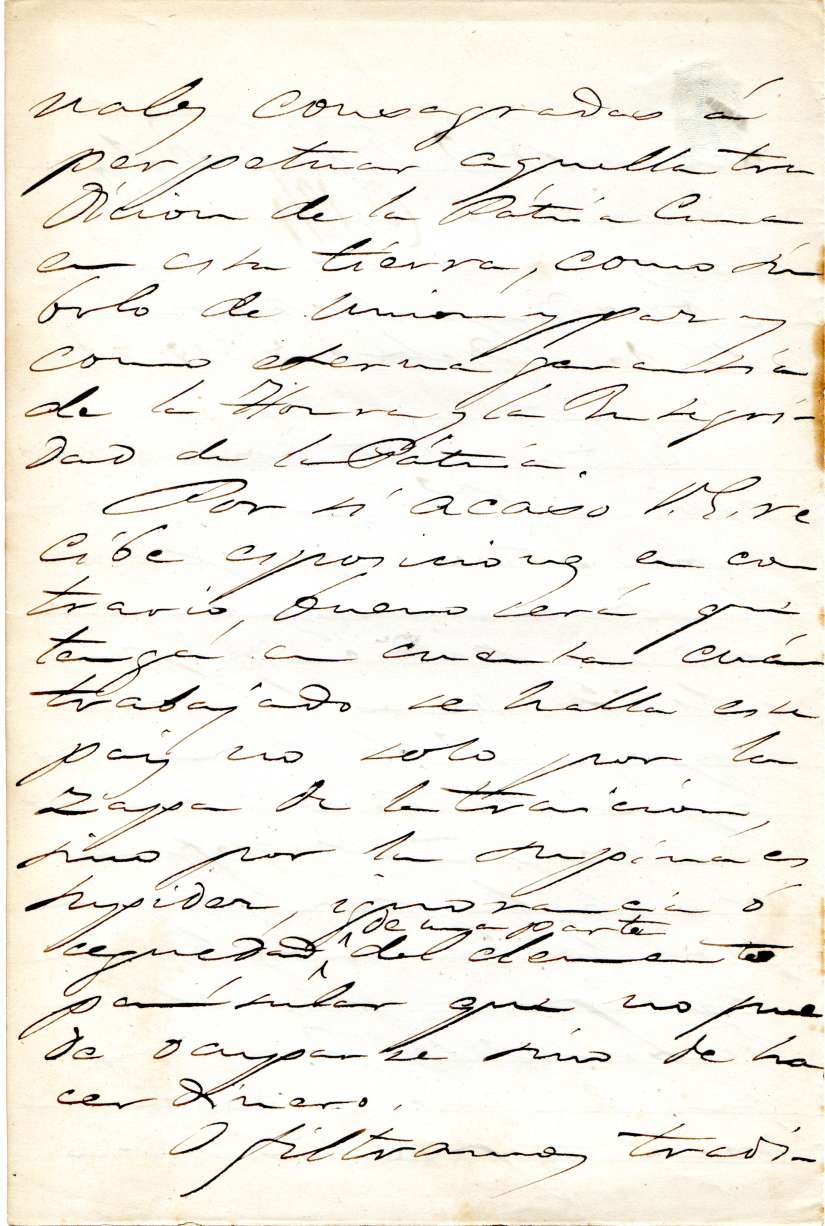 nales consagradas á
perpetuar aquella tra
dicion de la Pátria Cuna
en esta tierra, como sím
bolo de union y paz y
como eterna garantía
de la Honra y la Integri-
dad de la Pátria.
Por si acaso V.E. re
cibe esposiciones en con
trario, bueno será que
tenga en cuenta cuán
trabajado se halla este
pais no solo por la
zapa de la traición,
sino por la supina es
tupidez, ignorancia ó
de una parte
ceguedad ^ del elemento
penínsular que no pue
de ocuparse sino de ha
cer dinero.
O filtramos tradi-